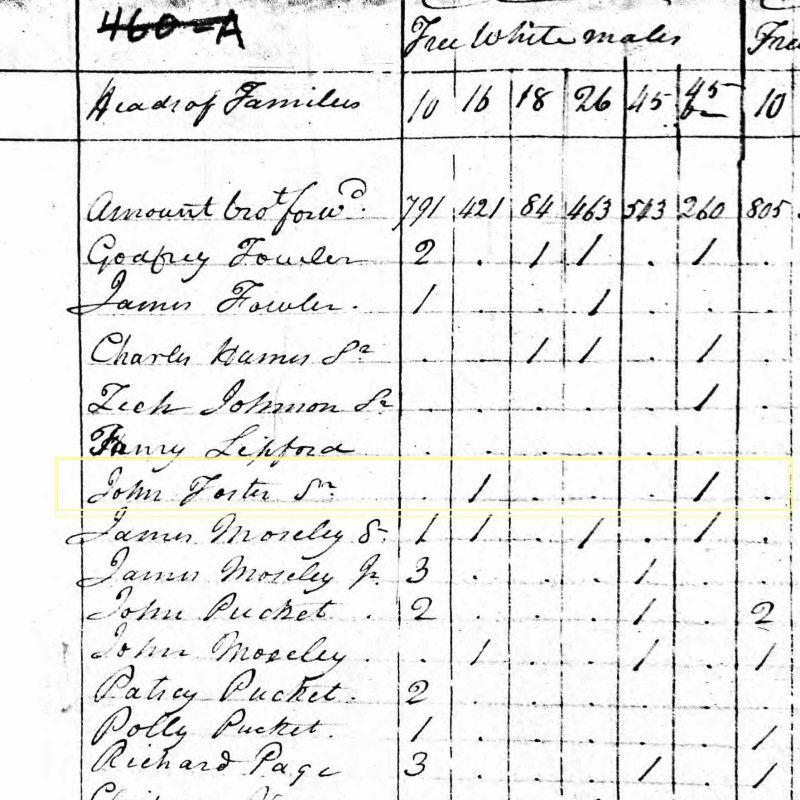 460-A
Free White males Free
Heads of Families 10 16 18 26 45 45 &c 10
Amount brot forwd. 791 421 84 463 543 260 805
Godfrey Fowler 2 . 1 1 . 1 .
James Fowler. 1 . . 1 . . .
Charles Hames Sr . . 1 1 . 1 .
Zech Johnson Sr . . . . . 1 .
Lipford . . . . . . .
John Foster Sr . 1 . . . 1 .
James Moseley Sr 1 1 . 1 . 1 .
James Moseley Jr 3 . . . 1 . .
John Pucket . 2 . . . 1 . 2
John Moseley . . 1 . . 1 . 1
Patsey Pucket. 2 . . . . . .
Polly Pucket. 1 . . . . . 1
Richard Page 3 . . . 1 . 1